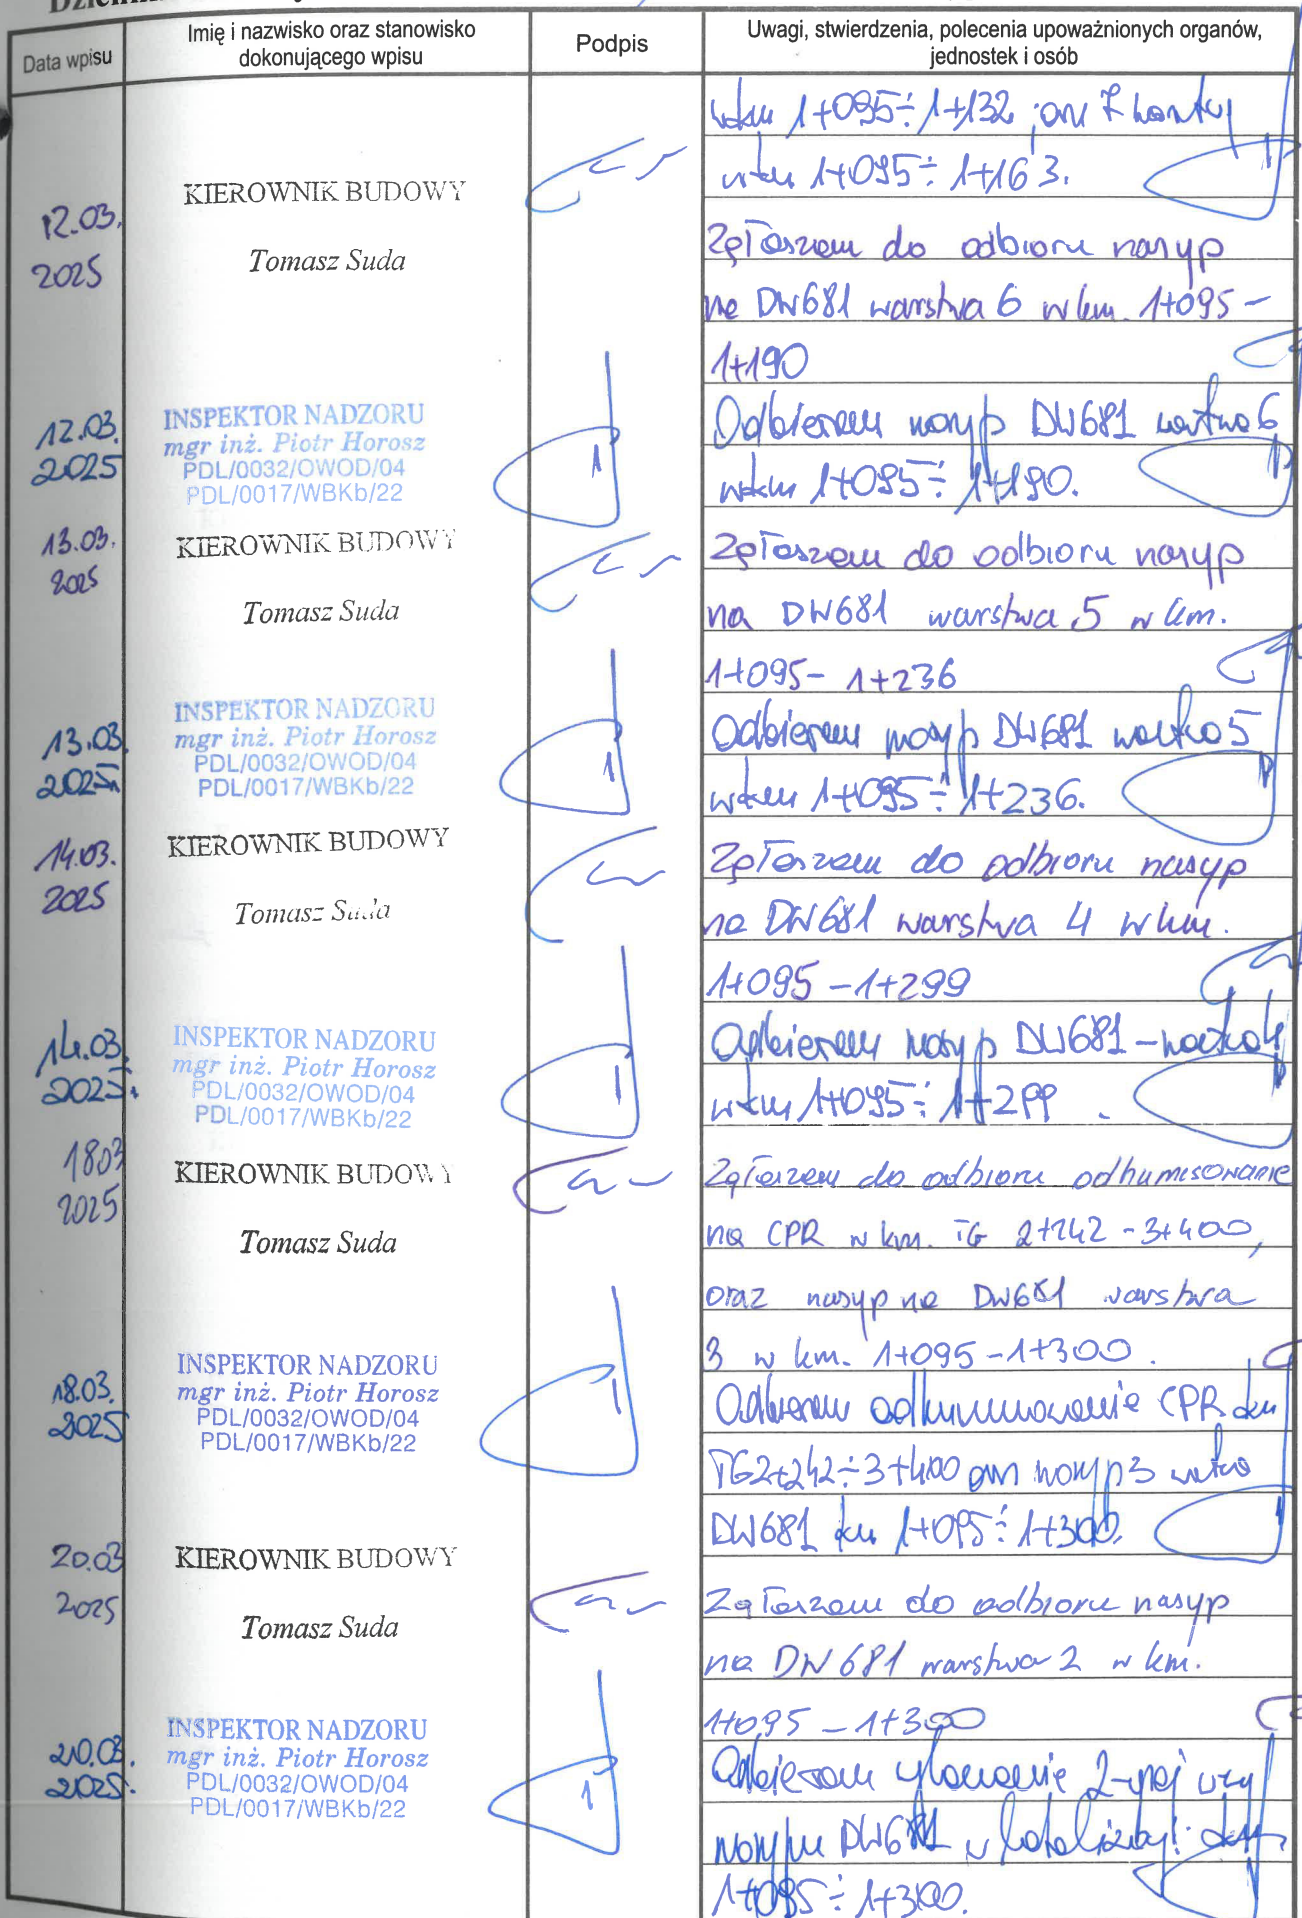 Data wpisu
Imię i nazwisko oraz stanowisko
dokonującego wpisu
Podpis
Uwagi, stwierdzenia, polecenia upoważnionych organów,
jednostek i osób
w km 1+095÷1+132 oraz 7
w km 1+095÷1+163.
12.03.
2025
KIEROWNIK BUDOWY
Tomasz Suda
Zgłaszam do odbioru nasyp
na DW681 warstwa 6 w km. 1+095-
1+190
12.03.
2025
INSPEKTOR NADZORU
mgr inż. Piotr Horosz
PDL/0032/OWOD/04
PDL/0017/WBKb/22
Odbieram nasyp DW681 warstwa 6
w km 1+095÷1+190.
13.03.
2025
KIEROWNIK BUDOWY
Tomasz Suda
Zgłaszam do odbioru nasyp
na DW681 warstwa 5 w km.
1+095- 1+236
13.03.
2025
INSPEKTOR NADZORU
mgr inż. Piotr Horosz
PDL/0032/OWOD/04
PDL/0017/WBKb/22
Odbieram nasyp DW681 warstwa 5
w km 1+095÷1+236.
14.03.
2025
KIEROWNIK BUDOWY
Tomasz Suda
Zgłaszam do odbioru nasyp
na DW681 warstwa 4 w km.
1+095-1+299
14.03.
2025.
INSPEKTOR NADZORU
mgr inż. Piotr Horosz
PDL/0032/OWOD/04
PDL/0017/WBKb/22
Odbieram nasyp DW681 - warstwa 4
w km 1+095÷1+299.
18.03
2025
KIEROWNIK BUDOWY
Tomasz Suda
Zgłaszam do odbioru odhumusowanie
na CPR w km. TG 2+242-3+400,
oraz nasyp na DW681 warstwa
3 w km. 1+095-1+300.
18.03.
2025
INSPEKTOR NADZORU
mgr inż. Piotr Horosz
PDL/0032/OWOD/04
PDL/0017/WBKb/22
Odbieram odhumusowanie CPR km
TG2+242÷3+400 oraz nasyp 3 warstwa
DW681 km 1+095÷1+300.
20.03
2025
KIEROWNIK BUDOWY
Tomasz Suda
Zgłaszam do odbioru nasyp
na DW 681 warstwa 2 w km.
1+095 - 1+300
20.03.
2025.
INSPEKTOR NADZORU
mgr inż. Piotr Horosz
PDL/0032/OWOD/04
PDL/0017/WBKb/22
Odbieram wykonanie 2-giej
nasypu DW681 w lokalizacji: km
1+095÷1+300.